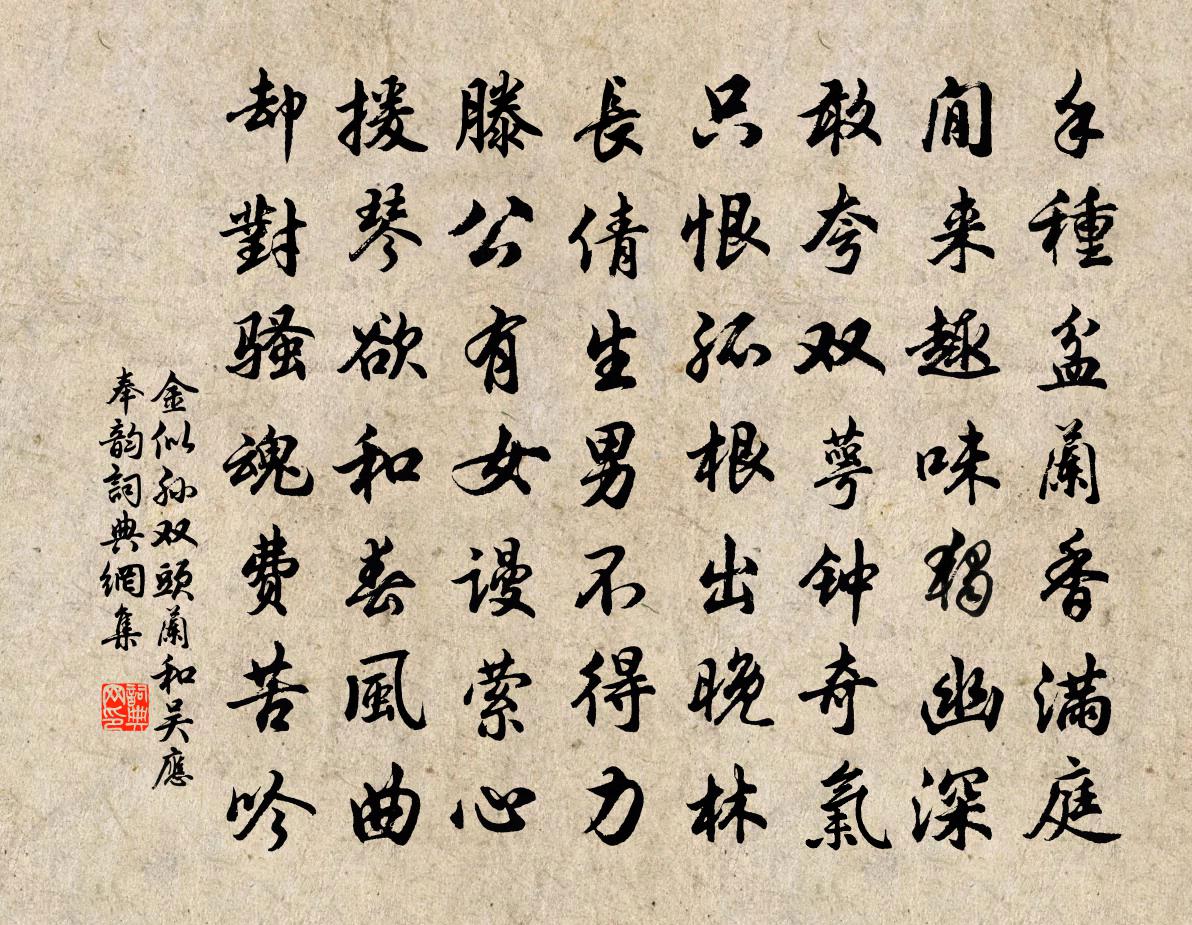 手種盆蘭香満庭
閒来趣味獨幽深
敢夸双萼钟奇氣
只恨孤根出晚林
長倩生男不得力
滕公有女谩萦心
援琴欲和春風曲
却對骚魂費苦吟
金似孙双頭蘭和吴應
奉韵詞典網集
詞典网印